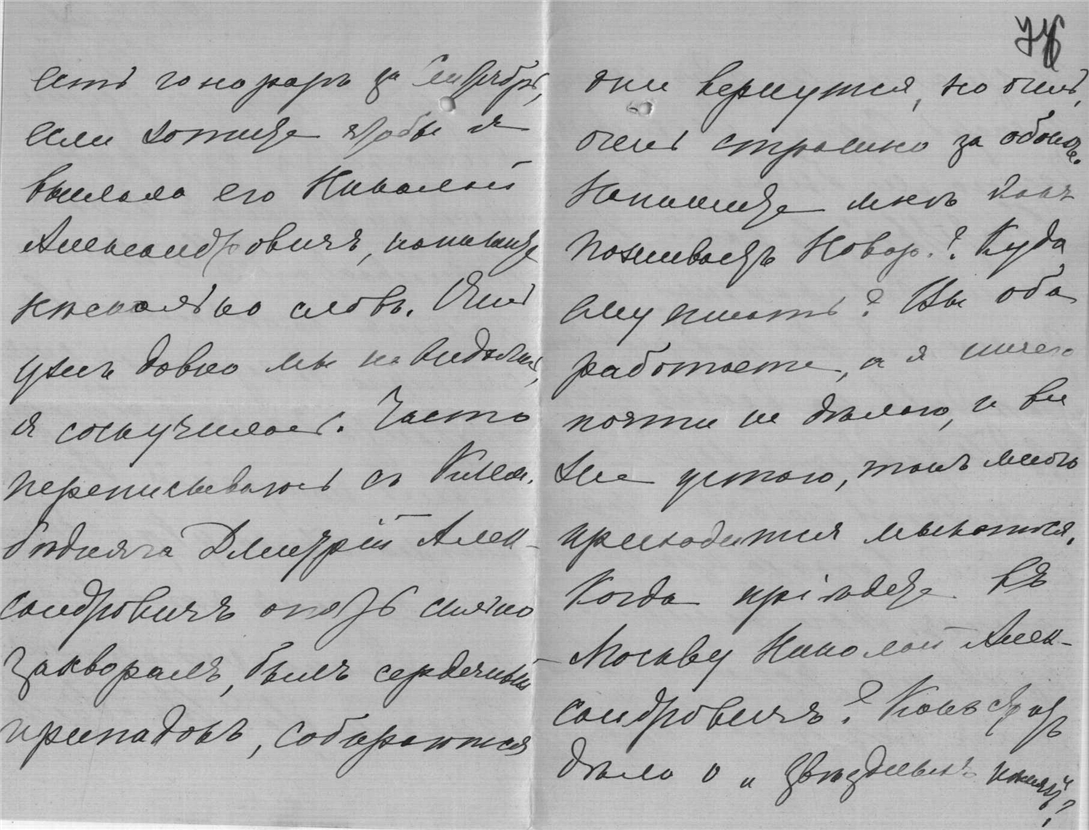 76
есть гонораръ за Сентябрь,
если хотите чтобы я
выслала его Николай
Александровичъ, напишите
нѣсколько словъ. Очень
ужъ давно мы не видались,
я соскучилась. Часто
переписываюсь съ Клем.
бѣдняга Дмитрій Алек-
сандровичъ опять сильно
захворалъ, былъ сердечный
припадокъ, собираются
они вернутся, но очень,
очень страшно за обоихъ.
Напишите мнѣ какъ
поживаетъ Новор.? Куда
ему писать? Вы оба
работаете, а я ничего
почти не дѣлаю, и все
же устаю, такъ много
приходится мыкаться.
Когда пріѣдете въ
Москву Николай Алек-
сандровичъ? Какъ стоитъ
дѣло о „звѣздныхъ